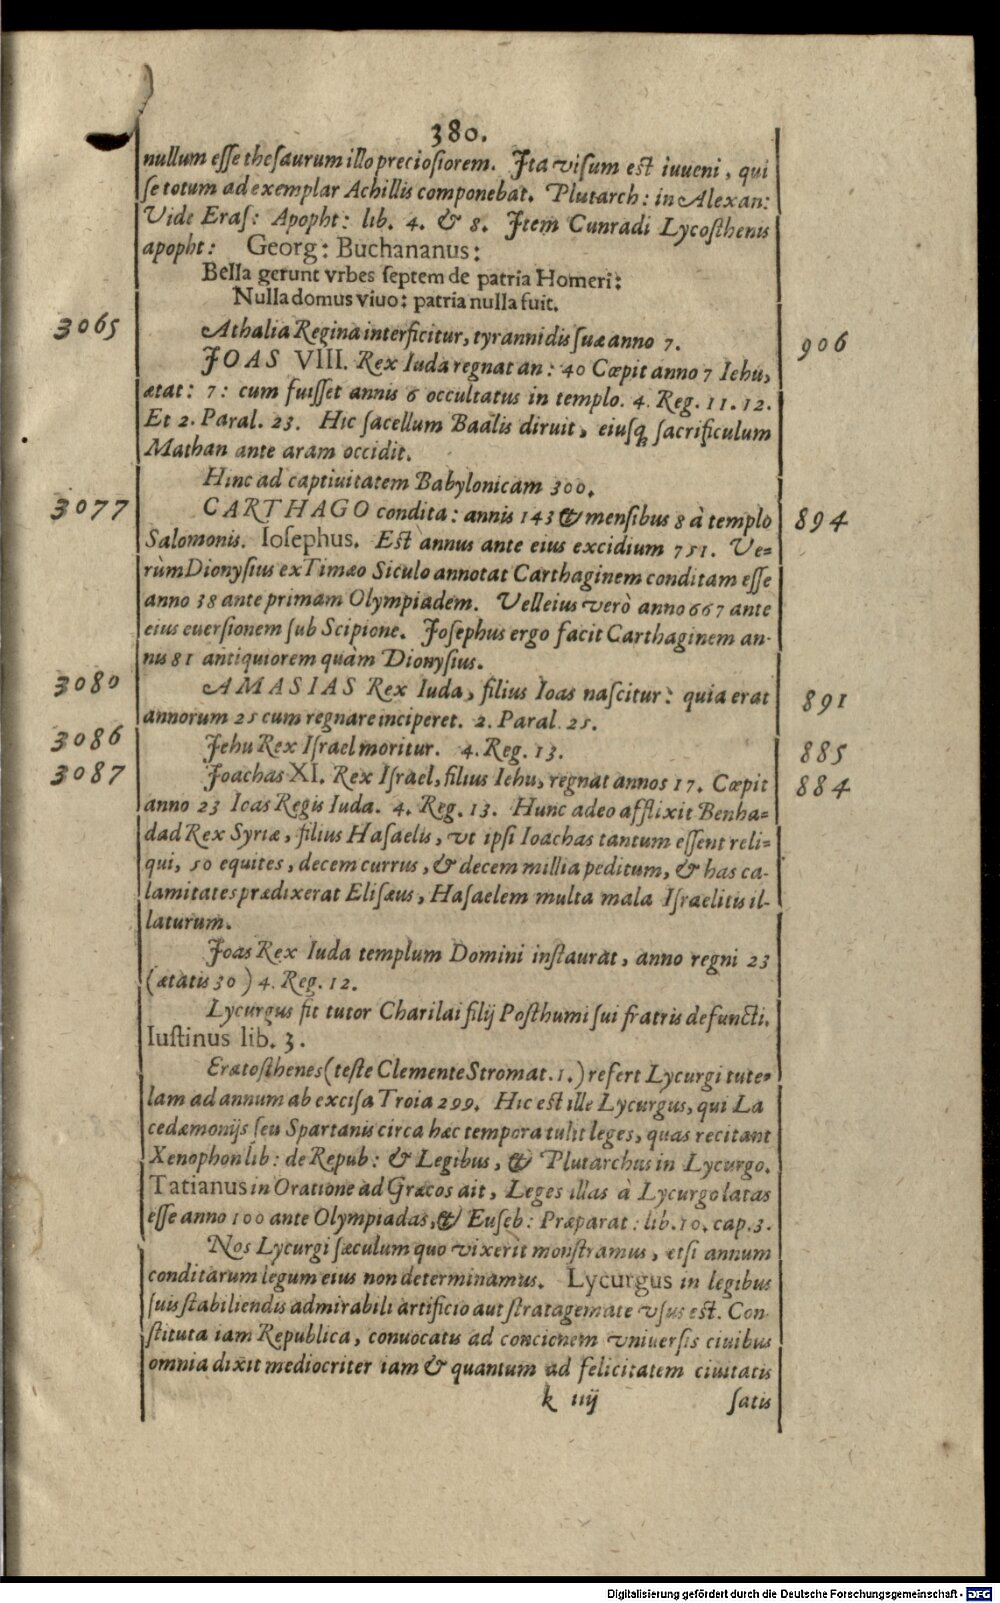 380.
nullum esse thesaurum illo preciosiorem. Ita visum est iuveni, qui
se totum ad exemplar Achillis componebat. Plutarch: in Alexan:
Vide Eras: Apopht: lib. 4. & 8. Item Cunradi Lycosthenis
apopht: Georg: Buchananus:
Bella gerunt vrbes septem de patria Homeri:
Nulla domus viuo: patria nulla fuit.
3065 Athalia Regina interficitur, tyrannidis suæ anno 7. 906
JOAS VIII. Rex Iuda regnat an: 40 Cœpit anno 7 Iehu,
ætat: 7: cum fuisset annis 6 occultatus in templo. 4. Reg. 11. 12.
Et 2. Paral. 23. Hic sacellum Baalis diruit, eiusq; sacrificulum
Mathan ante aram occidit.
Hinc ad captiuitatem Babylonicam 300.
3077 CARTHAGO condita: annis 143 & mensibus 8 à templo 894
Salomonis. Iosephus. Est annus ante eius excidium 751. Ve=
rùm Dionysius ex Timæo Siculo annotat Carthaginem conditam esse
anno 38 ante primam Olympiadem. Velleius verò anno 667 ante
eius euersionem sub Scipione. Josephus ergo facit Carthaginem an-
nis 81 antiquiorem quàm Dionysius.
3080 AMASIAS Rex Iuda, filius Ioas nascitur: quia erat 891
annorum 25 cum regnare inciperet. 2. Paral. 25.
3086 Jehu Rex Israel moritur. 4. Reg. 13. 885
3087 Joachas XI. Rex Israel, filius Iehu, regnat annos 17. Cœpit 884
anno 23 Ioas Regis Iuda. 4. Reg. 13. Hunc adeo afflixit Benha=
dad Rex Syriæ, filius Hasaelis, vt ipsi Ioachas tantum essent reli=
qui, 50 equites, decem currus, & decem millia peditum, & has ca-
lamitates prædixerat Elisæus, Hasaelem multa mala Israelitis il-
laturum.
Joas Rex Iuda templum Domini instaurat, anno regni 23
(ætatis 30) 4. Reg. 12.
Lycurgus fit tutor Charilai filij Posthumi sui fratris defuncti.
Iustinus lib. 3.
Eratosthenes (teste Clemente Stromat. 1.) refert Lycurgi tute=
lam ad annum ab excisa Troia 299. Hic est ille Lycurgus, qui La
cedæmonijs seu Spartanis circa hæc tempora tulit leges, quas recitant
Xenophon lib: de Repub: & Legibus, & Plutarchus in Lycurgo.
Tatianus in Oratione ad Græcos ait, Leges illas à Lycurgo latas
esse anno 100 ante Olympiadas, & Euseb: Præparat: lib. 10. cap. 3.
Nos Lycurgi sæculum quo vixerit monstramus, etsi annum
conditarum legum eius non determinamus. Lycurgus in legibus
suis stabiliendis admirabili artificio aut stratagemate vsus est. Con-
stituta iam Republica, conuocatis ad concionem vniuersis ciuibus
omnia dixit mediocriter iam & quantum ad felicitatem ciuitatis
k iiij satis
Digitalisierung gefördert durch die Deutsche Forschungsgemeinschaft - DFG